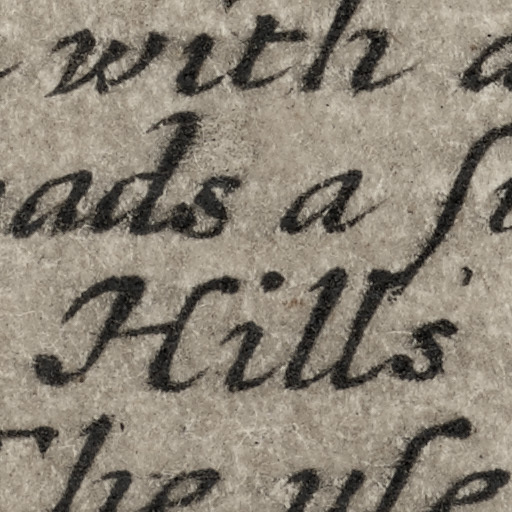 with a
ads a ſ
Hill's
The uſe